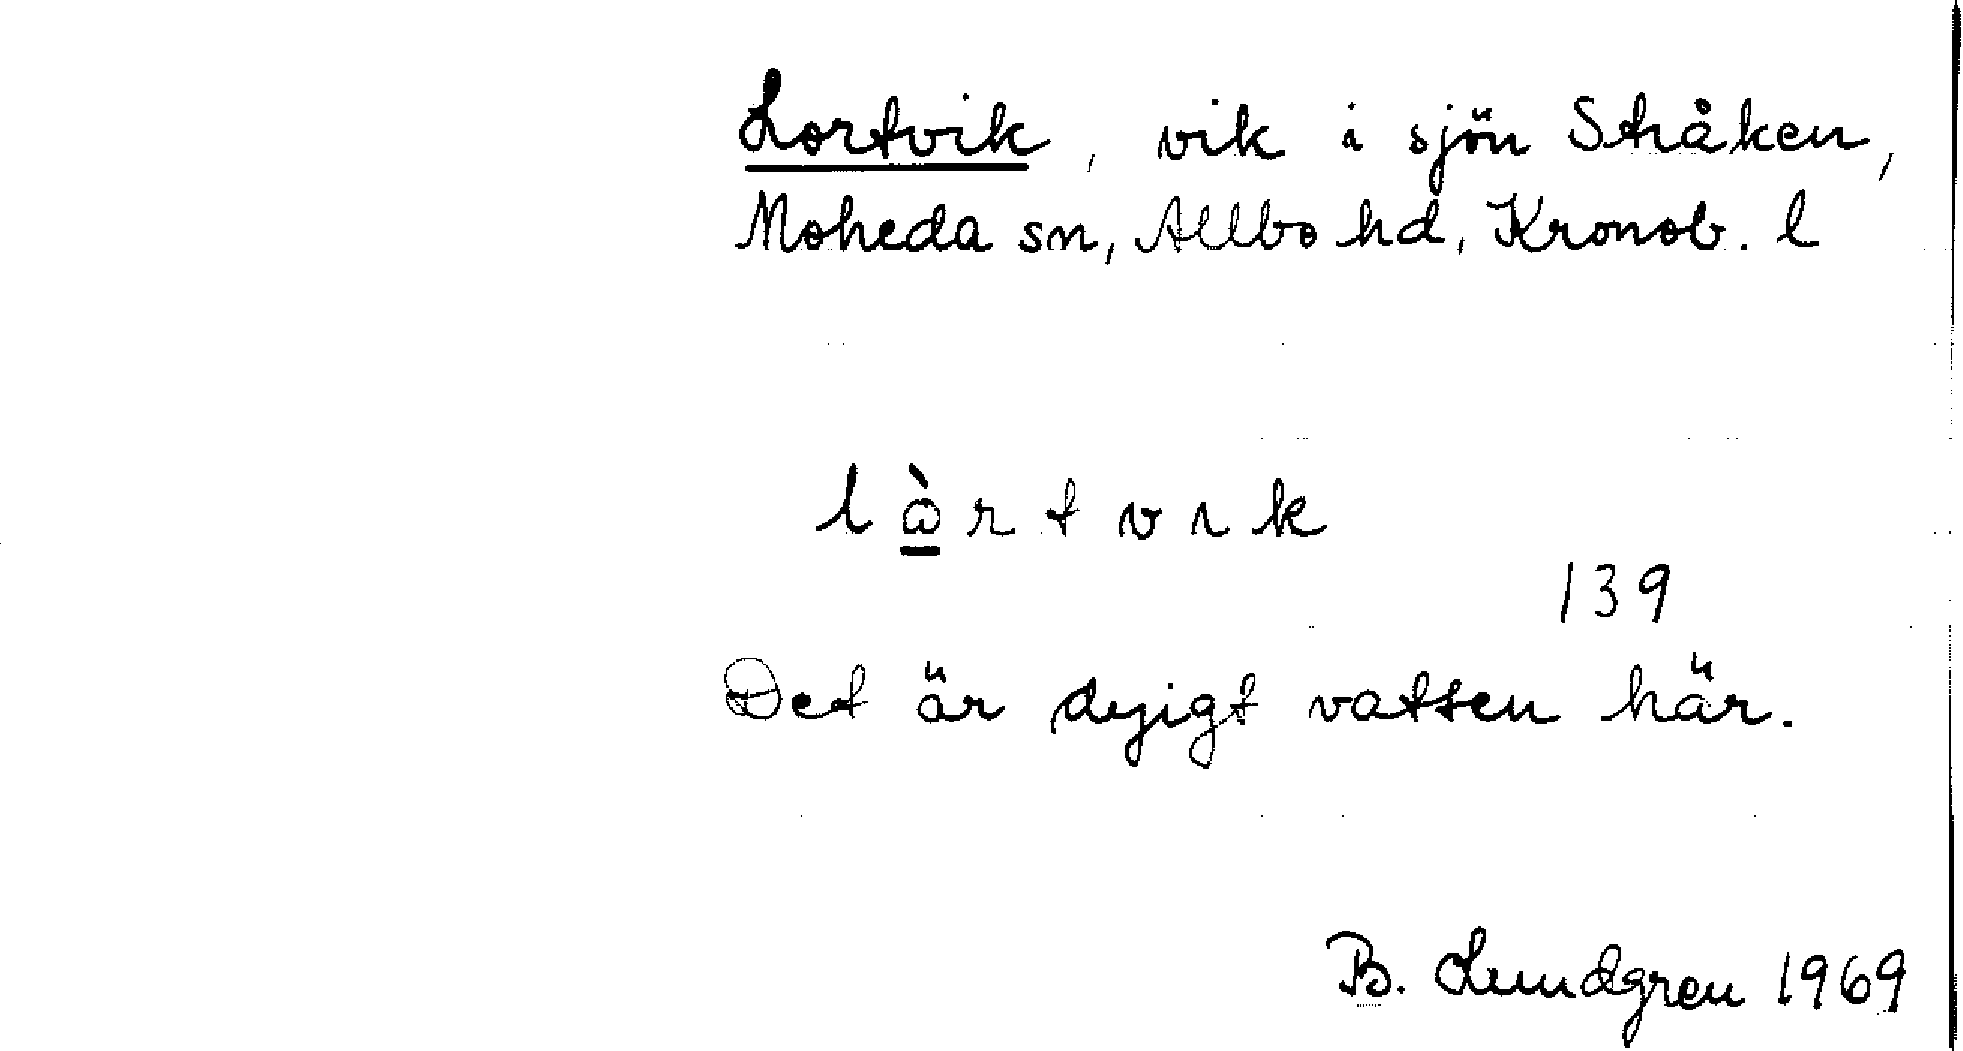 Lortvik, vik i sjön Stråken,
Moheda sn, Allbo hd, Kronob. l
lɷ̀rtvık
139
Det är dyigt vatten här.
B. Lundgren 1969